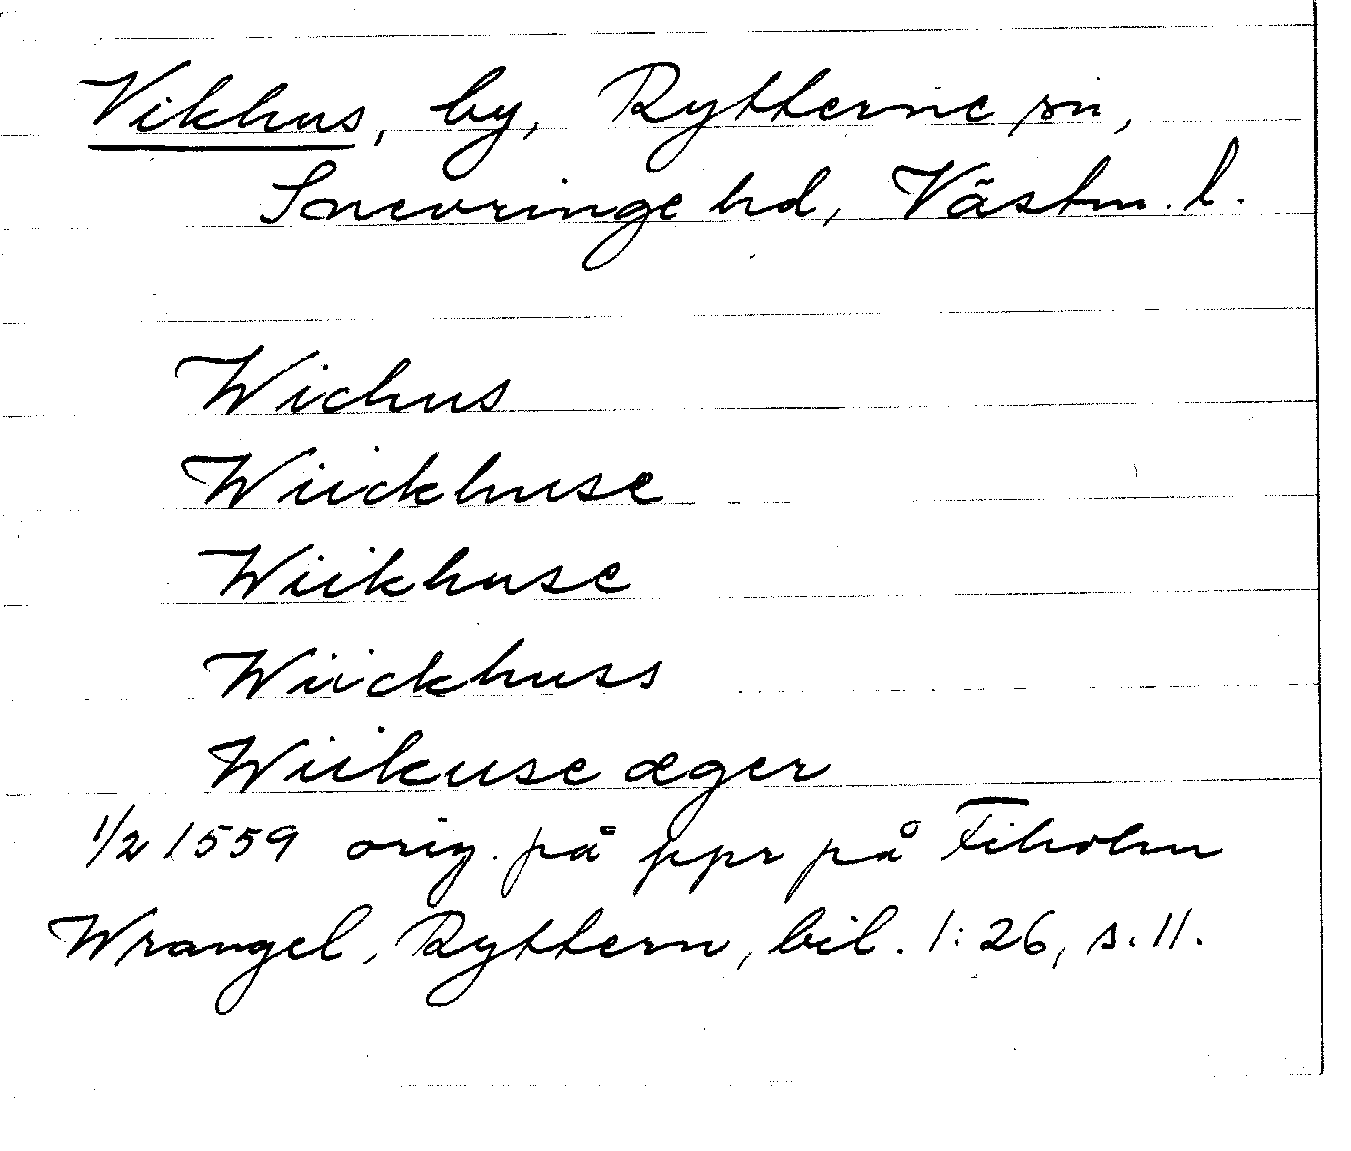 Vikhus, by, Rytterne sn,
Snevringe hd, Västm. l.
Wichus
Wiickhuse
Wiikhuse
Wiickhuss
Wiikuse æger
1/2 1559 orig. på ppr på Fiholm
Wrangel, Ryttern, bil. 1:26, s. 11.